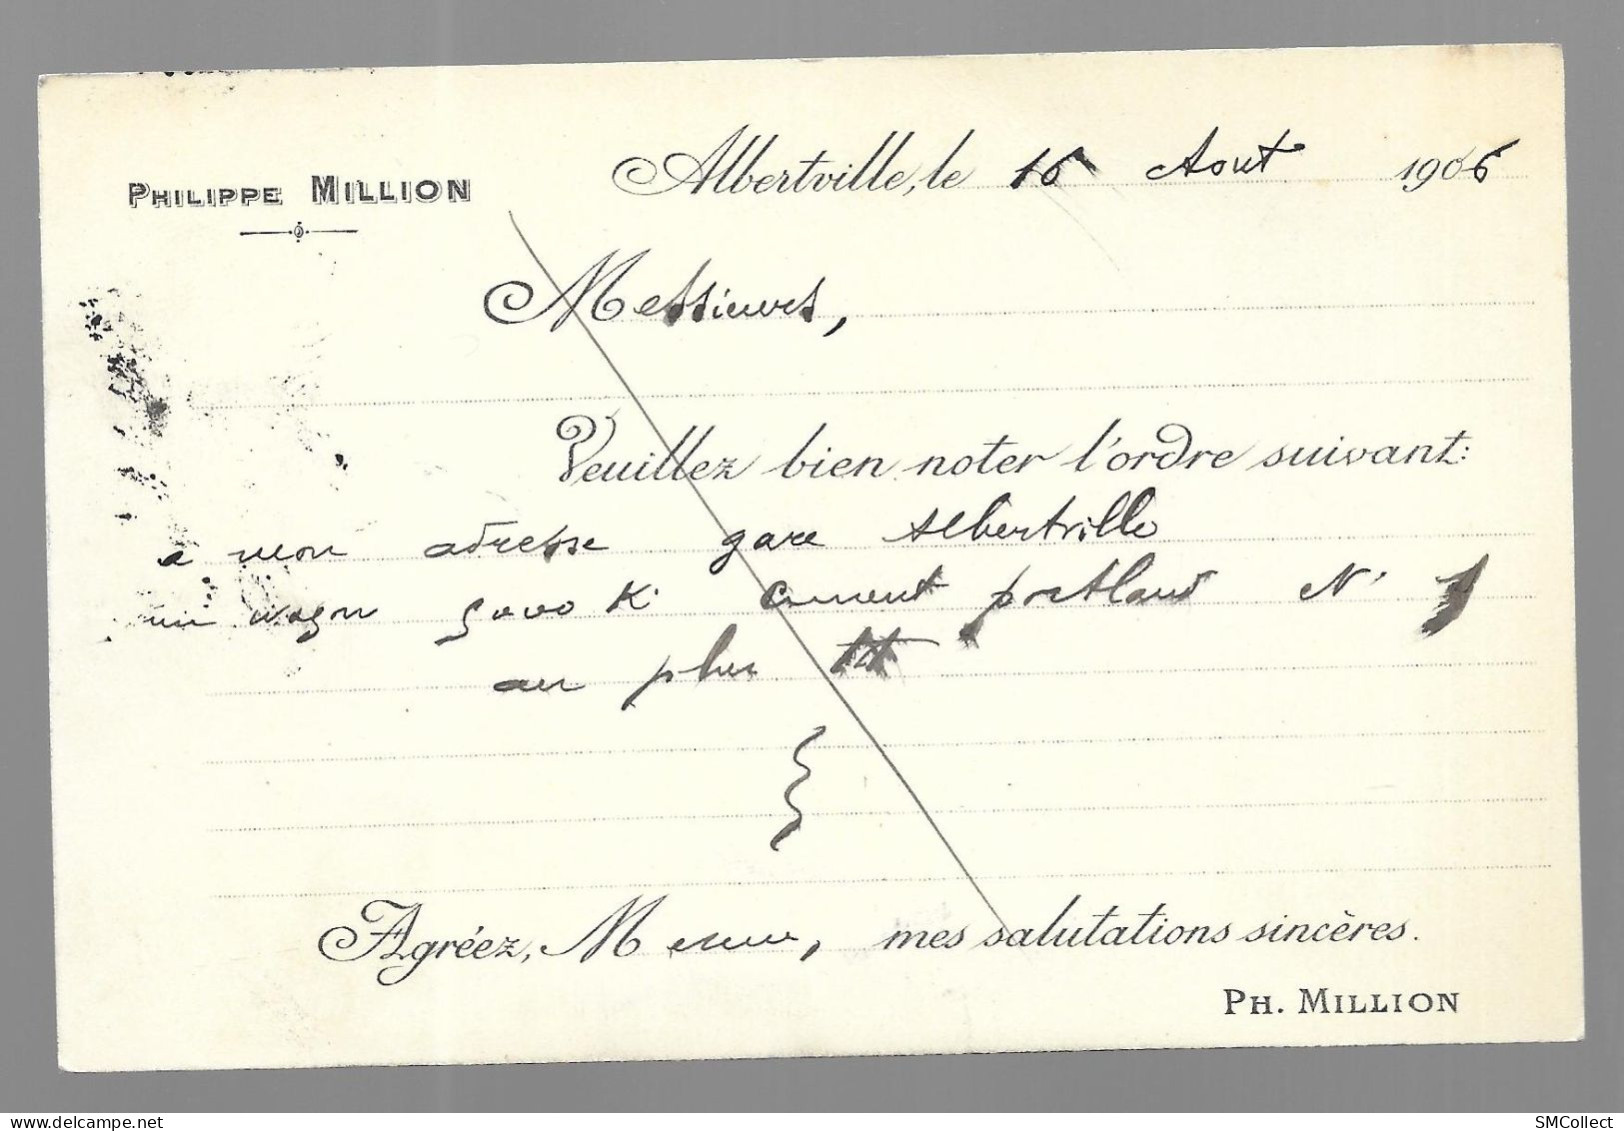 PHILIPPE MILLION
Albertville, le 16 Aout 1906
Messieurs,
Veuillez bien noter l'ordre suivant:
a mon adresse gare Albertville
un wagon 5000 K° ciment portland N° 1
au plus tôt
Agréez, Messieurs, mes salutations sincères.
PH. MILLION
SMCollect